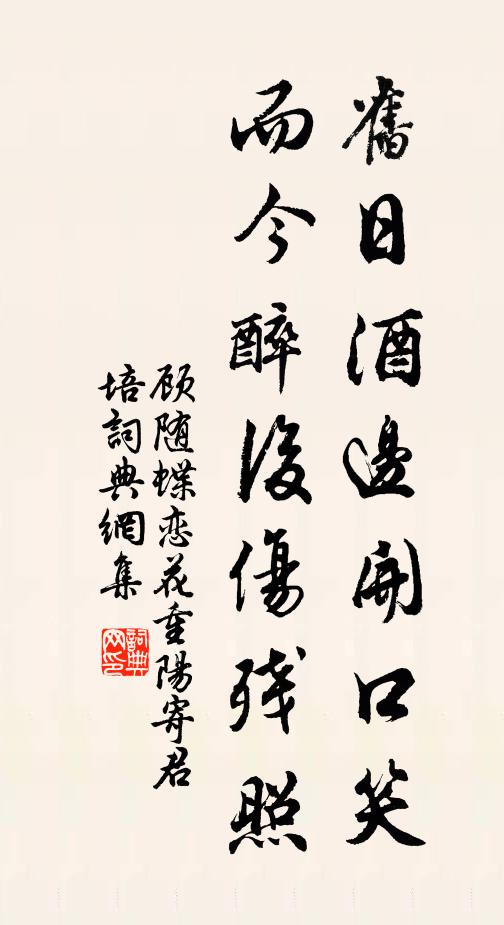 舊日酒邊開口笑
而今醉後傷殘照
顾随蝶恋花重陽寄君
培詞典網集
詞典网印